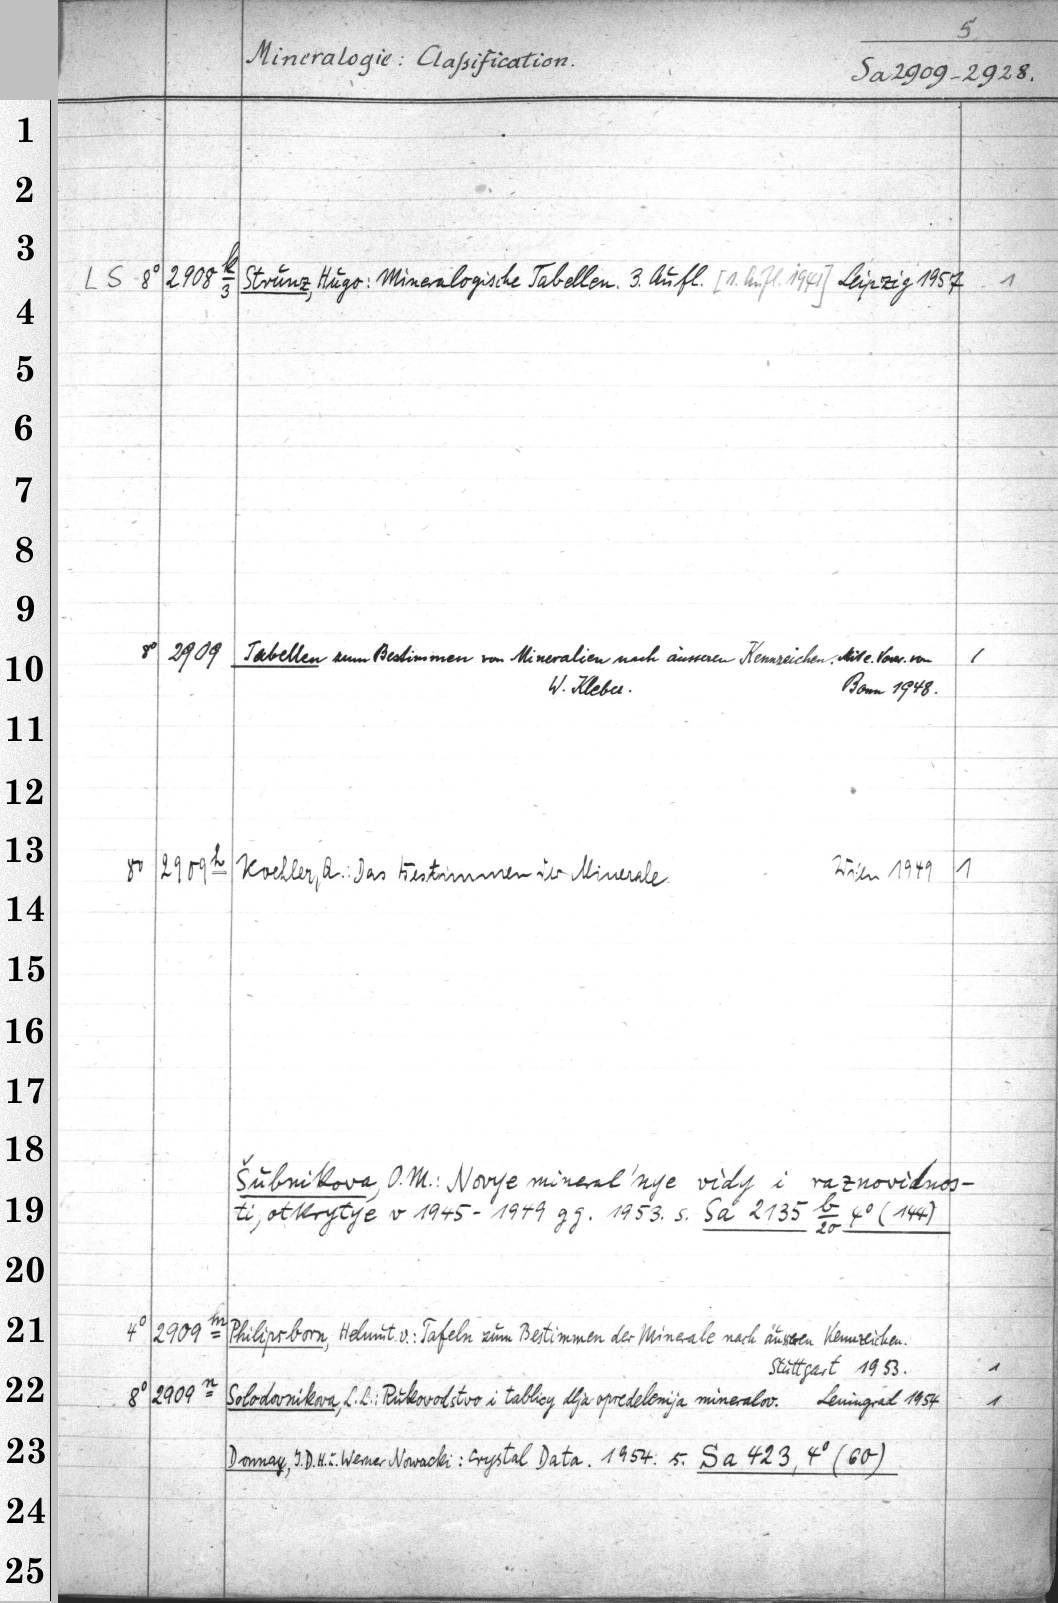 5
Mineralogie: Claſsification.
Sa 2909-2928.
1
2
3
LS 8° 2908 k/3 Strunz, Hugo: Mineralogische Tabellen. 3. Aufl. [1. Aufl. 1941] Leipzig 1957 1
4
5
6
7
8
9
8° 2909 Tabellen zum Bestimmen von Mineralien nach äusseren Kennzeichen. Mit e. Vorw. von 1
10
W. Kleber. Bonn 1948.
11
12
13
8° 2909 h Koehler, A.: Das Bestimmen der Minerale. Wien 1949 1
14
15
16
17
18
Šubnikova, O.M.: Novye mineral'nye vidy i raznovidnos-
19 ti, otkrytye v 1945-1949 gg. 1953. s. Sa 2135 b/20 4° (144)
20
21 4° 2909 m Philipsborn, Helmut v.: Tafeln zum Bestimmen der Minerale nach äusseren Kennzeichen.
Stuttgart 1953. 1
22 8° 2909 n Solodovnikova, L.L.: Rukovodstvo i tablicy dlja opredelenija mineralov. Leningrad 1954 1
23 Donnay, J.D.H. u. Werner Nowacki: Crystal Data. 1954. s. Sa 423, 4° (60)
24
25